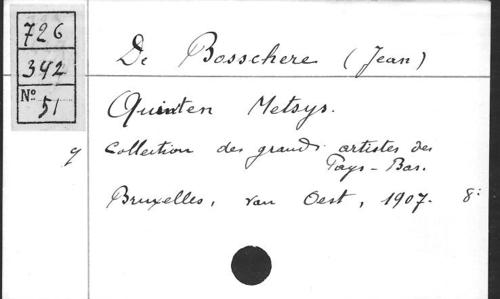 726
342
Nº 51
De Bosschere (Jean)
Quinten Metsys.
q Collection des grands artistes des
Pays-Bas.
Bruxelles, van Oest, 1907. 8: